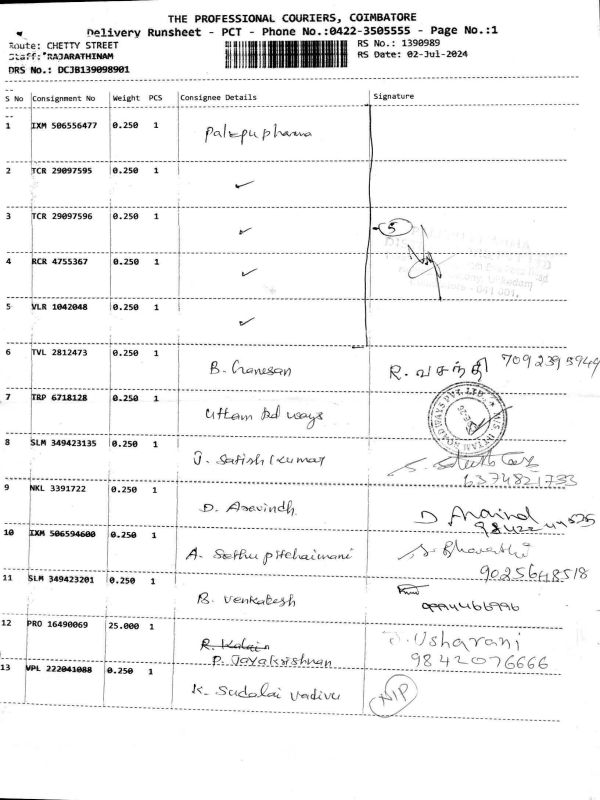 THE PROFESSIONAL COURIERS, COIMBATORE
Delivery Runsheet - PCT - Phone No.:0422-3505555 - Page No.:1
Route: CHETTY STREET
RS No.: 1390989
Staff: RAJARATHINAM
RS Date: 02-Jul-2024
DRS No.: DCJB139098901
S No Consignment No Weight PCS Consignee Details Signature
1 IXM 506556477 0.250 1 pharma
2 TCR 29097595 0.250 1
3 TCR 29097596 0.250 1 5
4 RCR 4755367 0.250 1
5 VLR 1042048 0.250 1
6 TVL 2812473 0.250 1 B. Ganesan R. வசந்தி 7092395949
7 TRP 6718128 0.250 1 Uttam Rd ways
8 SLM 349423135 0.250 1 J. Satish kumar 6374821733
9 NKL 3391722 0.250 1 D. Aravindh D Aravind
10 IXM 506594600 0.250 1 A. Sethu pitchaimani S. Bharathi
9025648518
11 SLM 349423201 0.250 1 B. Venkatesh
12 PRO 16490069 25.000 1 R. Kalai
P. Jayakrishnan J. Usharani
9842076666
13 VPL 222041088 0.250 1 K. Sudalai vadivu NIP